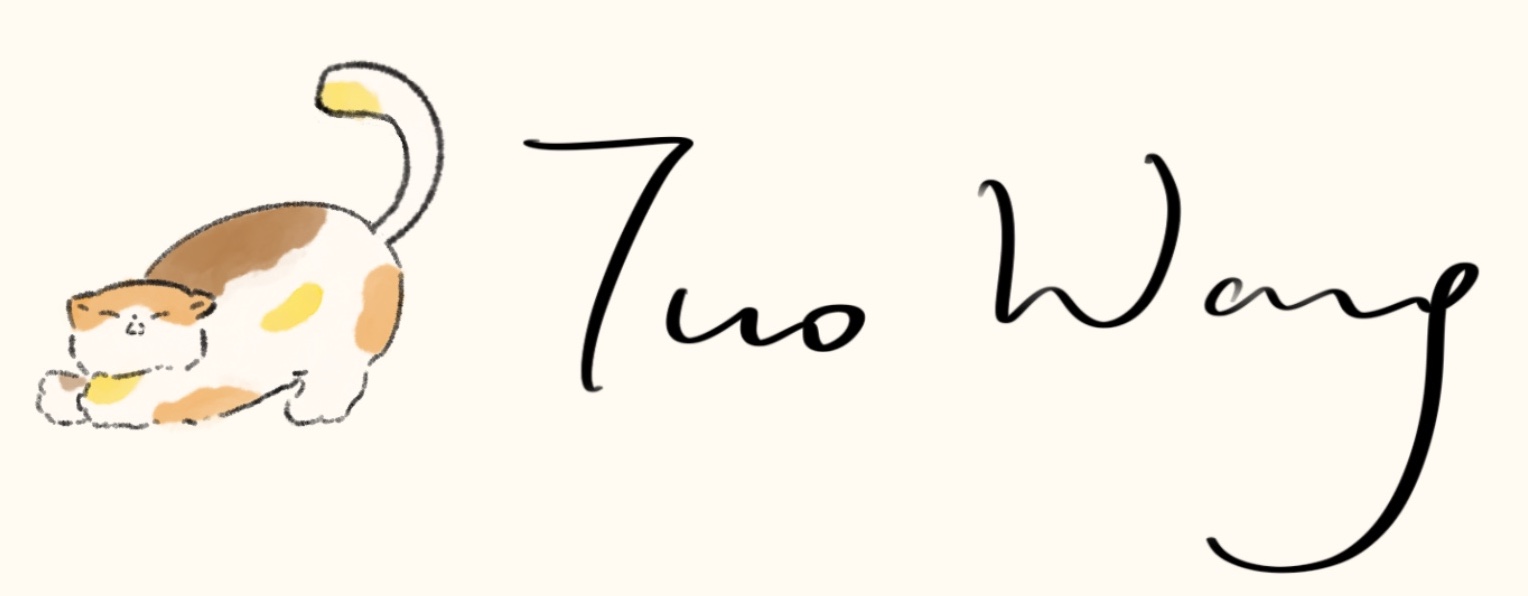 Tuo Wang